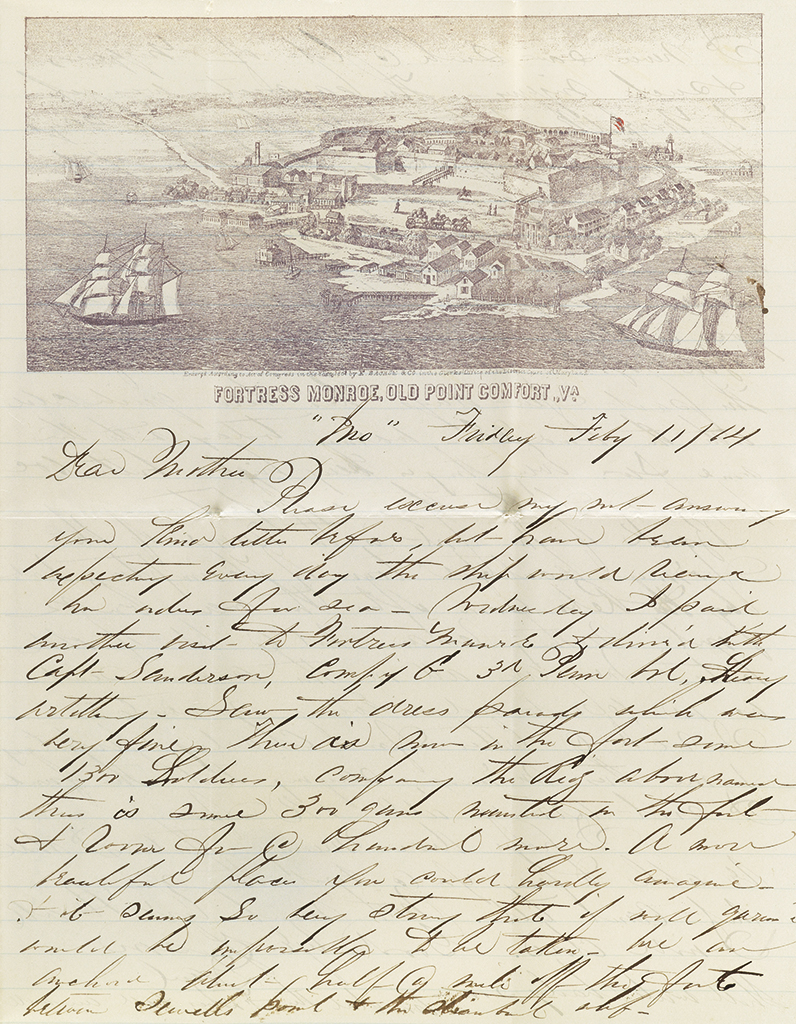 Entered According to Act of Congress in the Year 1861 by E. Sachse & Co. in the Clerks Office of the District Court of Maryland
FORTRESS MONROE, OLD POINT COMFORT, VA
Friday Feby 11/64
Dear Mother
Please excuse my not answering
your kind letter before, but have been
expecting every day the ship would receive
her orders for sea - Wednesday I paid
another visit to Fortress Monroe & dined with
Capt Sanderson, Compy G 3rd Penn Vol, Heavy
artillery. Saw the dress parade which was
very fine. There is now in the fort some
1300 Soldiers, comp the Reg above named
there is some 300 guns mounted in the fort
& room for a hundred more. A more
beautiful place you could hardly imagine -
& it seems so very strong that if well
would be impossible to be taken - we are
anchored about half a mile off the fort
between Sewells point & the ship -